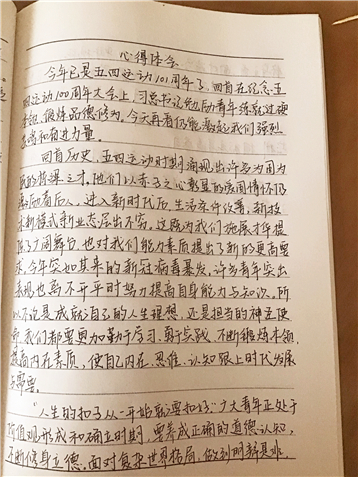 心得体会
今年已是五四运动101周年了，回首在纪念五
四运动100周年大会上，习总书记勉励青年练就过硬
本领，锻炼品德修为，今天再看仍能激起我们强烈
共鸣和奋进力量。
回首历史，五四运动时期涌现出许多为国为
民的栋梁之才，他们以赤子之心彰显的爱国情怀仍
激励后人，进入新时代后，生活条件改善，新技
术新模式新业态层出不穷，这既为我们施展才华提
供了广阔舞台，也对我们能力素质提出了新的更高要
求，今年突如其来的新冠病毒暴发，许多青年突出
表现也离不开平时努力提高自身能力与知识。所
以不论是成就自己的人生理想，还是担当的神圣使
命，我们都要更加勤于学习，勇于实践，不断锻炼本领，
提高内在素质，使自己内在、思维、认知跟上时代发展
与需要。
“人生的扣子从一开始就要扣好”广大青年正处于
价值观形成和确立时期，要养成正确的道德认知，
不断修身立德。面对复杂世界格局，做到明辨是非、